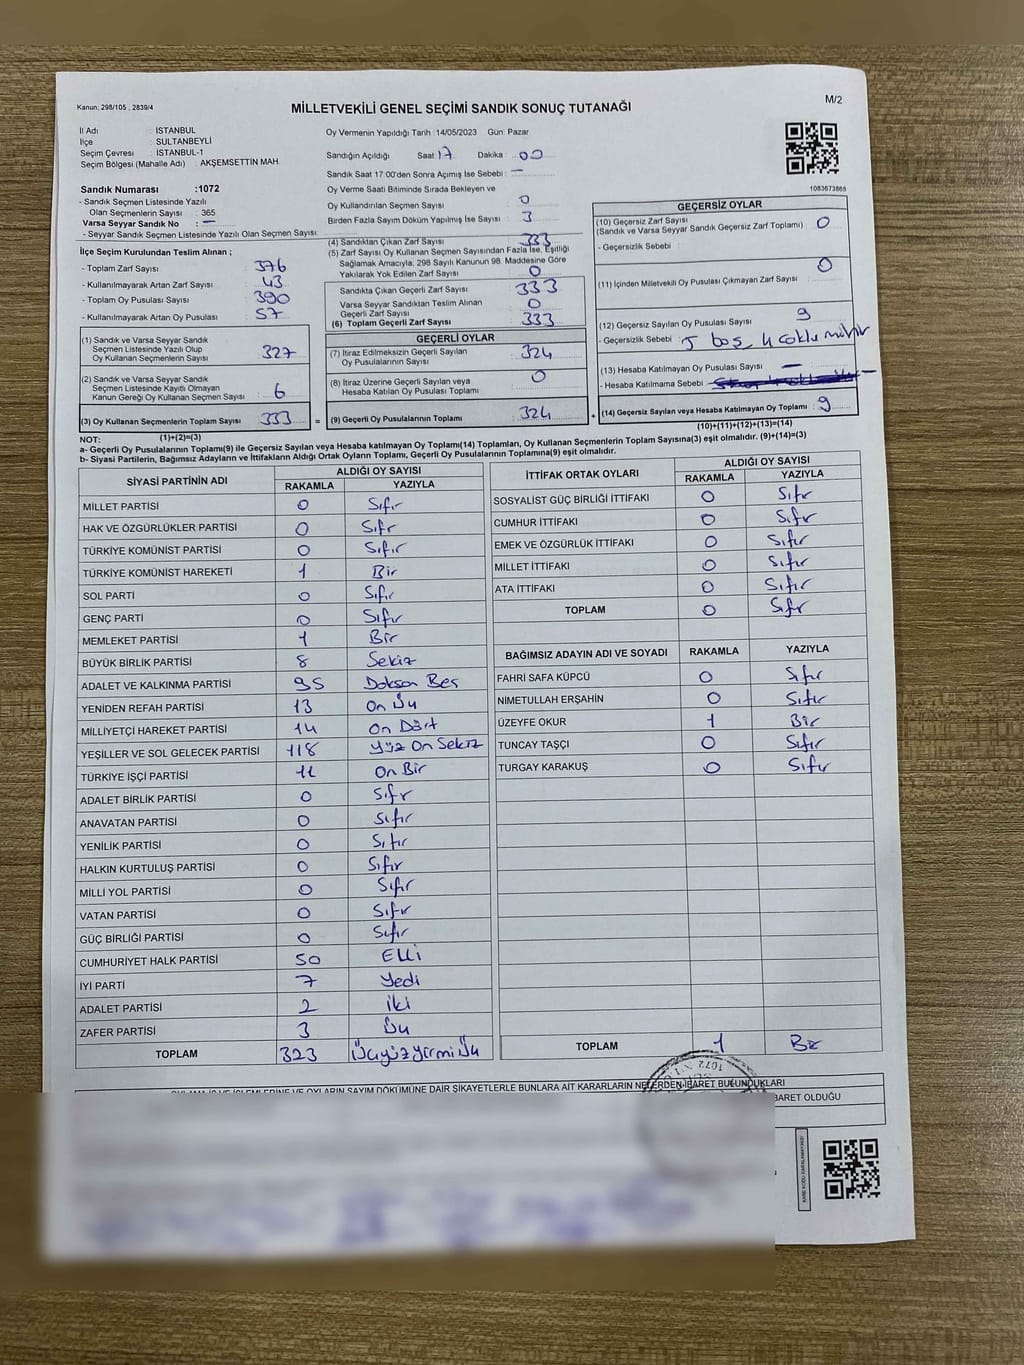 Kanun, 298/105 , 2839/4
MİLLETVEKİLİ GENEL SEÇİMİ SANDIK SONUÇ TUTANAĞI
M/2
İl Adı : İSTANBUL
İlçe : SULTANBEYLİ
Seçim Çevresi : İSTANBUL-1
Seçim Bölgesi (Mahalle Adı) : AKŞEMSETTİN MAH.
Oy Vermenin Yapıldığı Tarih :14/05/2023 Gün: Pazar
Sandığın Açıldığı Saat : 17 Dakika : 00
Sandık Saat 17:00'den Sonra Açılmış İse Sebebi : —
Oy Verme Saati Bitiminde Sırada Bekleyen ve
Oy Kullandırılan Seçmen Sayısı : 0
Birden Fazla Sayım Döküm Yapılmış İse Sayısı : 3
1083673868
Sandık Numarası :1072
- Sandık Seçmen Listesinde Yazılı
Olan Seçmenlerin Sayısı : 365
Varsa Seyyar Sandık No : —
- Seyyar Sandık Seçmen Listesinde Yazılı Olan Seçmen Sayısı:
İlçe Seçim Kurulundan Teslim Alınan ;
- Toplam Zarf Sayısı : 376
- Kullanılmayarak Artan Zarf Sayısı : 43
- Toplam Oy Pusulası Sayısı : 390
- Kullanılmayarak Artan Oy Pusulası : 57
(1) Sandık ve Varsa Seyyar Sandık
Seçmen Listesinde Yazılı Olup
Oy Kullanan Seçmenlerin Sayısı : 327
(2) Sandık ve Varsa Seyyar Sandık
Seçmen Listesinde Kayıtlı Olmayan
Kanun Gereği Oy Kullanan Seçmen Sayısı : 6
(3) Oy Kullanan Seçmenlerin Toplam Sayısı : 333
(1)+(2)=(3)
(4) Sandıktan Çıkan Zarf Sayısı : 333
(5) Zarf Sayısı Oy Kullanan Seçmen Sayısından Fazla İse, Eşitliği
Sağlamak Amacıyla, 298 Sayılı Kanunun 98. Maddesine Göre
Yakılarak Yok Edilen Zarf Sayısı : 0
Sandıkta Çıkan Geçerli Zarf Sayısı : 333
Varsa Seyyar Sandıktan Teslim Alınan
Geçerli Zarf Sayısı : 0
(6) Toplam Geçerli Zarf Sayısı : 333
GEÇERLİ OYLAR
(7) İtiraz Edilmeksizin Geçerli Sayılan
Oy Pusulalarının Sayısı : 324
(8) İtiraz Üzerine Geçerli Sayılan veya
Hesaba Katılan Oy Pusulası Toplamı : 0
= (9) Geçerli Oy Pusulalarının Toplamı : 324 +
GEÇERSİZ OYLAR
(10) Geçersiz Zarf Sayısı : 0
(Sandık ve Varsa Seyyar Sandık Geçersiz Zarf Toplamı)
- Geçersizlik Sebebi :
(11) İçinden Milletvekili Oy Pusulası Çıkmayan Zarf Sayısı : 0
(12) Geçersiz Sayılan Oy Pusulası Sayısı : 9
- Geçersizlik Sebebi : 5 boş, 4 çoklu mühür
(13) Hesaba Katılmayan Oy Pusulası Sayısı : —
- Hesaba Katılmama Sebebi : —
(14) Geçersiz Sayılan veya Hesaba Katılmayan Oy Toplamı : 9
(10)+(11)+(12)+(13)=(14)
NOT:
a- Geçerli Oy Pusulalarının Toplamı(9) ile Geçersiz Sayılan veya Hesaba katılmayan Oy Toplamı(14) Toplamları, Oy Kullanan Seçmenlerin Toplam Sayısına(3) eşit olmalıdır. (9)+(14)=(3)
b- Siyasi Partilerin, Bağımsız Adayların ve İttifakların Aldığı Ortak Oyların Toplamı, Geçerli Oy Pusulalarının Toplamına(9) eşit olmalıdır.
SİYASİ PARTİNİN ADI ALDIĞI OY SAYISI
RAKAMLA YAZIYLA
MİLLET PARTİSİ 0 Sıfır
HAK VE ÖZGÜRLÜKLER PARTİSİ 0 Sıfır
TÜRKİYE KOMÜNİST PARTİSİ 0 Sıfır
TÜRKİYE KOMÜNİST HAREKETİ 1 Bir
SOL PARTİ 0 Sıfır
GENÇ PARTİ 0 Sıfır
MEMLEKET PARTİSİ 1 Bir
BÜYÜK BİRLİK PARTİSİ 8 Sekiz
ADALET VE KALKINMA PARTİSİ 95 Doksan Beş
YENİDEN REFAH PARTİSİ 13 On Üç
MİLLİYETÇİ HAREKET PARTİSİ 14 On Dört
YEŞİLLER VE SOL GELECEK PARTİSİ 118 Yüz On Sekiz
TÜRKİYE İŞÇİ PARTİSİ 11 On Bir
ADALET BİRLİK PARTİSİ 0 Sıfır
ANAVATAN PARTİSİ 0 Sıfır
YENİLİK PARTİSİ 0 Sıfır
HALKIN KURTULUŞ PARTİSİ 0 Sıfır
MİLLİ YOL PARTİSİ 0 Sıfır
VATAN PARTİSİ 0 Sıfır
GÜÇ BİRLİĞİ PARTİSİ 0 Sıfır
CUMHURİYET HALK PARTİSİ 50 Elli
İYİ PARTİ 7 Yedi
ADALET PARTİSİ 2 İki
ZAFER PARTİSİ 3 Üç
TOPLAM 323 Üçyüz yirmi Üç
İTTİFAK ORTAK OYLARI ALDIĞI OY SAYISI
RAKAMLA YAZIYLA
SOSYALİST GÜÇ BİRLİĞİ İTTİFAKI 0 Sıfır
CUMHUR İTTİFAKI 0 Sıfır
EMEK VE ÖZGÜRLÜK İTTİFAKI 0 Sıfır
MİLLET İTTİFAKI 0 Sıfır
ATA İTTİFAKI 0 Sıfır
TOPLAM 0 Sıfır
BAĞIMSIZ ADAYIN ADI VE SOYADI RAKAMLA YAZIYLA
FAHRİ SAFA KÜPCÜ 0 Sıfır
NİMETULLAH ERŞAHİN 0 Sıfır
ÜZEYFE OKUR 1 Bir
TUNCAY TAŞÇI 0 Sıfır
TURGAY KARAKUŞ 0 Sıfır
TOPLAM 1 Bir
OYLAMA İŞ VE İŞLEMLERİNE VE OYLARIN SAYIM DÖKÜMÜNE DAİR ŞİKAYETLERLE BUNLARA AİT KARARLARIN NELERDEN İBARET BULUNDUKLARI
İBARET OLDUĞU
1072